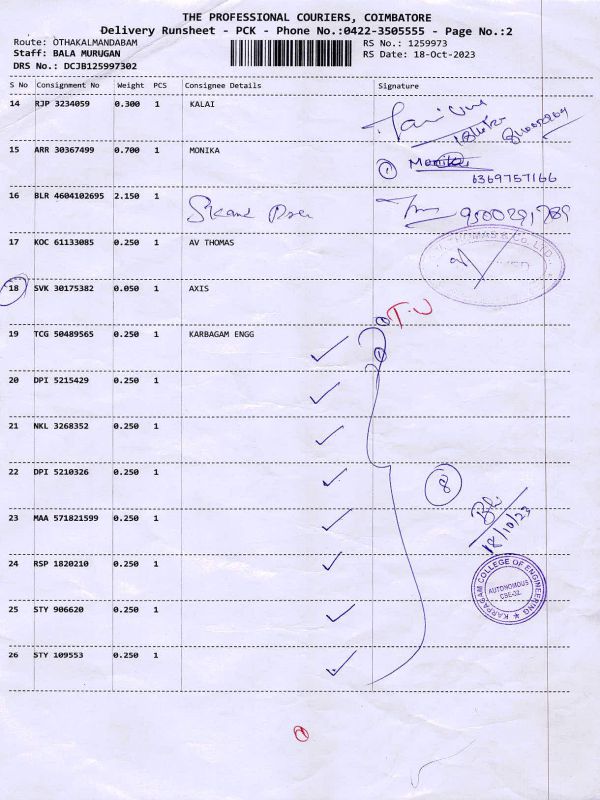 THE PROFESSIONAL COURIERS, COIMBATORE
Delivery Runsheet - PCK - Phone No.:0422-3505555 - Page No.:2
Route: OTHAKALMANDABAM RS No.: 1259973
Staff: BALA MURUGAN RS Date: 18-Oct-2023
DRS No.: DCJB125997302
S No Consignment No Weight PCS Consignee Details Signature
14 RJP 3234059 0.300 1 KALAI
15 ARR 30367499 0.700 1 MONIKA 1 Monika
6369757166
16 BLR 4604102695 2.150 1
17 KOC 61133085 0.250 1 AV THOMAS
18 SVK 30175382 0.050 1 AXIS
19 TCG 50489565 0.250 1 KARBAGAM ENGG
20 DPI 5215429 0.250 1
21 NKL 3268352 0.250 1
22 DPI 5210326 0.250 1
8
23 MAA 571821599 0.250 1
18/10/23
24 RSP 1820210 0.250 1
KARPAGAM COLLEGE OF ENGINEERING
AUTONOMOUS
CBE-32.
25 STY 906620 0.250 1
26 STY 109553 0.250 1